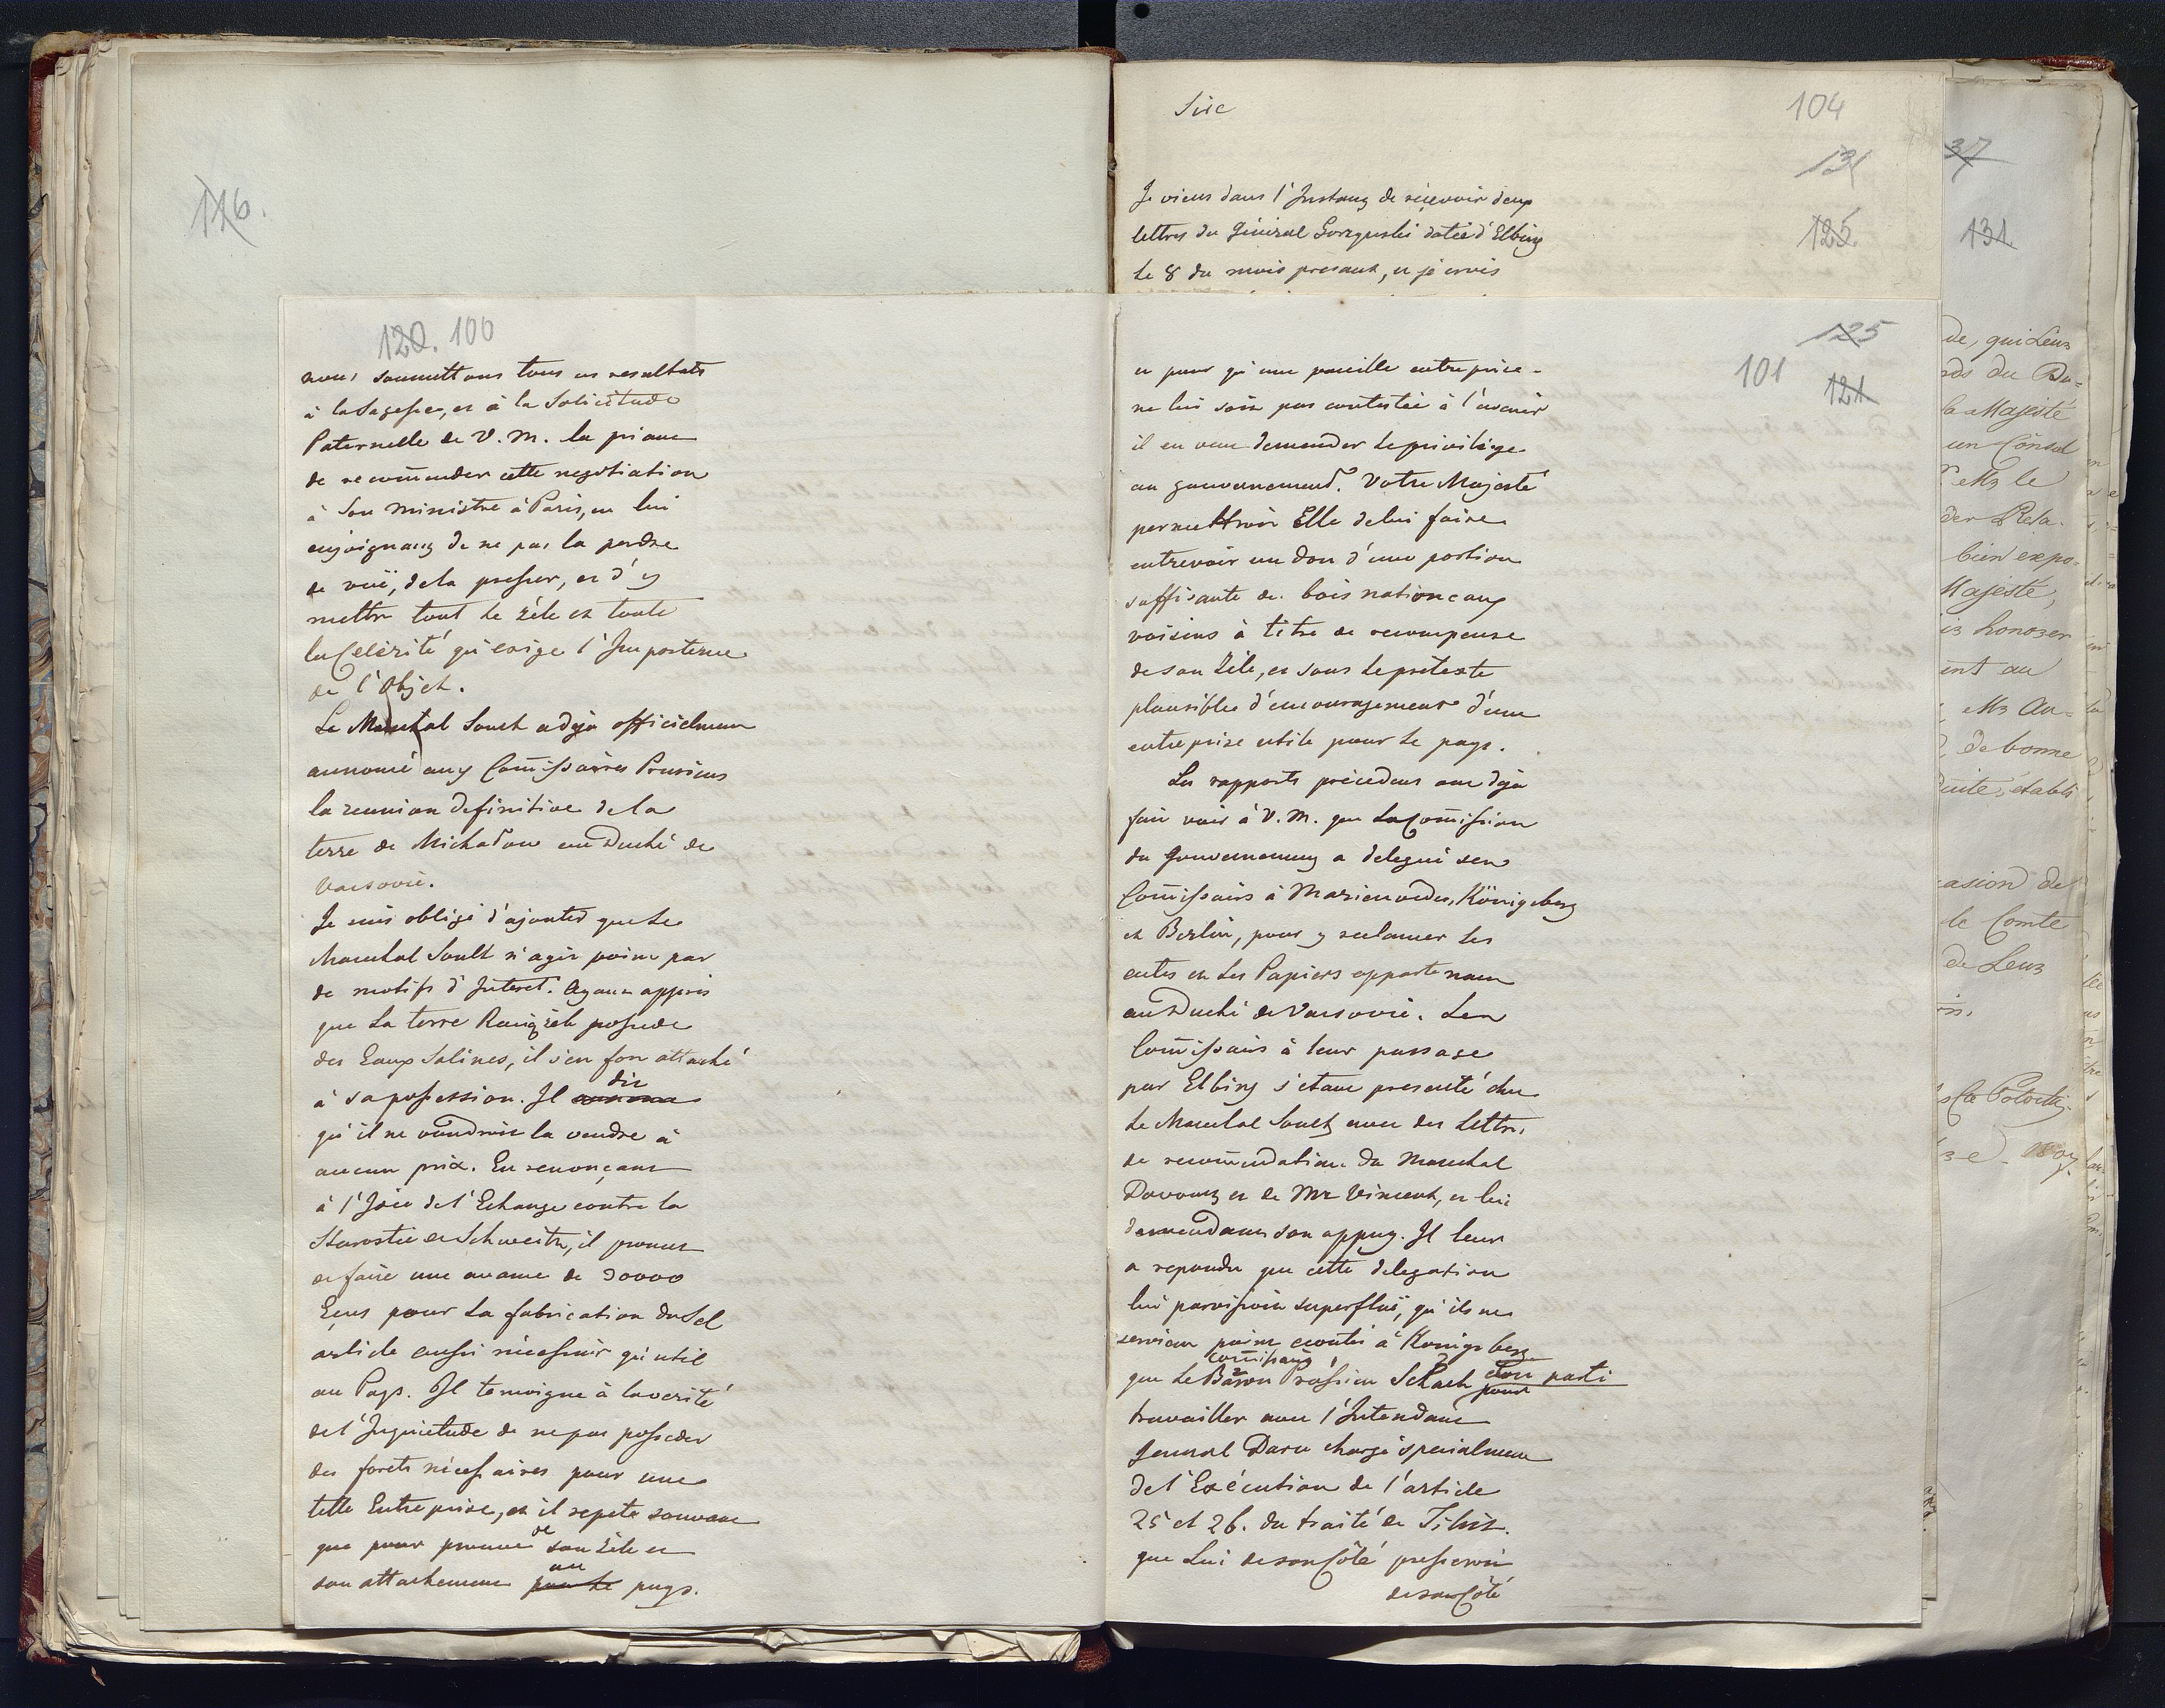 116.
120. 100
nous soumettons tous ces resultats
à la Sagesse, et à la Solicitude
Paternelle de V. M. la priant
de recom̄ender cette negotiation
à Son Ministre à Paris, en lui
enjoignant de ne pas la perdre
de vuë, de la presser, et d'y
mettre tout le zéle et toute
la Celérité qu'exige l'Importence
de l'Objet.
Le Marechal Soult a deja officielment
annoncé aux Com̄issaires Prusiens
la reunion definitive de la
terre de Michalow au Duché de
Varsovie.
Je suis obligé d'ajouter que le
Marechal Soult n'agit point par
de motifs d'Interet. Ayant appris
que la terre posséde
des Eaux Salines, il s'en fort attaché
à sa possession. Il dit
qu'il ne voudroit la vendre à
aucun prix. En renonçant
à l'Idée de l'Echange contre la
Starostie de Schweitz, il promet
de faire une avance de 30000
Ecus pour la fabrication du Sel
article aussi nécessair qu'util
au Pays. Il temoigne à la verité
de l'Inquietude de ne pas posseder
des forets nécessaires pour une
telle Entreprise, et il repete souvant
que pour preuve de son Zéle et
son attachement pour le au pays.
Sire
104
131
125.
Je viens dans l'Instant de recevoir deux
lettres du Général datée d'Elbing
le 8 du mois presant, et je crois
125
101
121
et pour qu'une pareille entreprise
ne lui soit pas contestée à l'avenir
il en veut demender le privilége
au gouvernement. Votre Majesté
permettroit Elle de lui faire
entrevoir un don d'une portion
suffisante de bois nationeaux
voisins à titre de recompense
de son Zéle, et sous le prétexte
plausible d'encouragement d'une
entreprise utile pour le pays.
Les rapports précedens ont deja
fait voir à V. M. que la Com̄ission
du Gouvernement a delegué ses
Com̄issairs à Marienverder, Königsberg
et Berlin, pour y reclamer les
actes et les Papiers appartenant
au Duché de Varsovie. Les
Com̄issairs à leur passage
par Elbing s'etant presenté chez
le Marechal Soult avec des lettres
de recom̄endation du Marechal
Davoust et de Mr Vincent, et lui
demendant son appuy. Il leur
a repondu que cette delegation
lui paroissoit superfluë, qu'ils ne
seroient point ecoutés à Königsberg
com̄issaire
que le Baron Prussien Schach etoit parti
pour
travailler avec l'Intendant
General Daru chargé specialment
de l'Exécution de l'article
25 et 26. du traité de Tilsit.
que Lui de son Côté presseroit
de son Côté
37
131.
de, qui Leurs
rds du Du=
la Majesté
un Consul
Mr le
der Rela-
bien expo=
Majesté,
honorer
ent au
Mr Au=
de bonne
établi
casion de
le Comte
de Leurs
Potocki
1807.